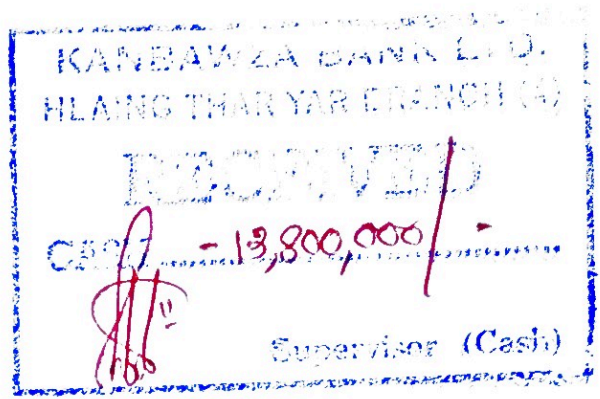 KANBAWZA BANK LTD.
HLAING THAR YAR BRANCH (4)
RECEIVED
-13,800,000/-
Supervisor (Cash)